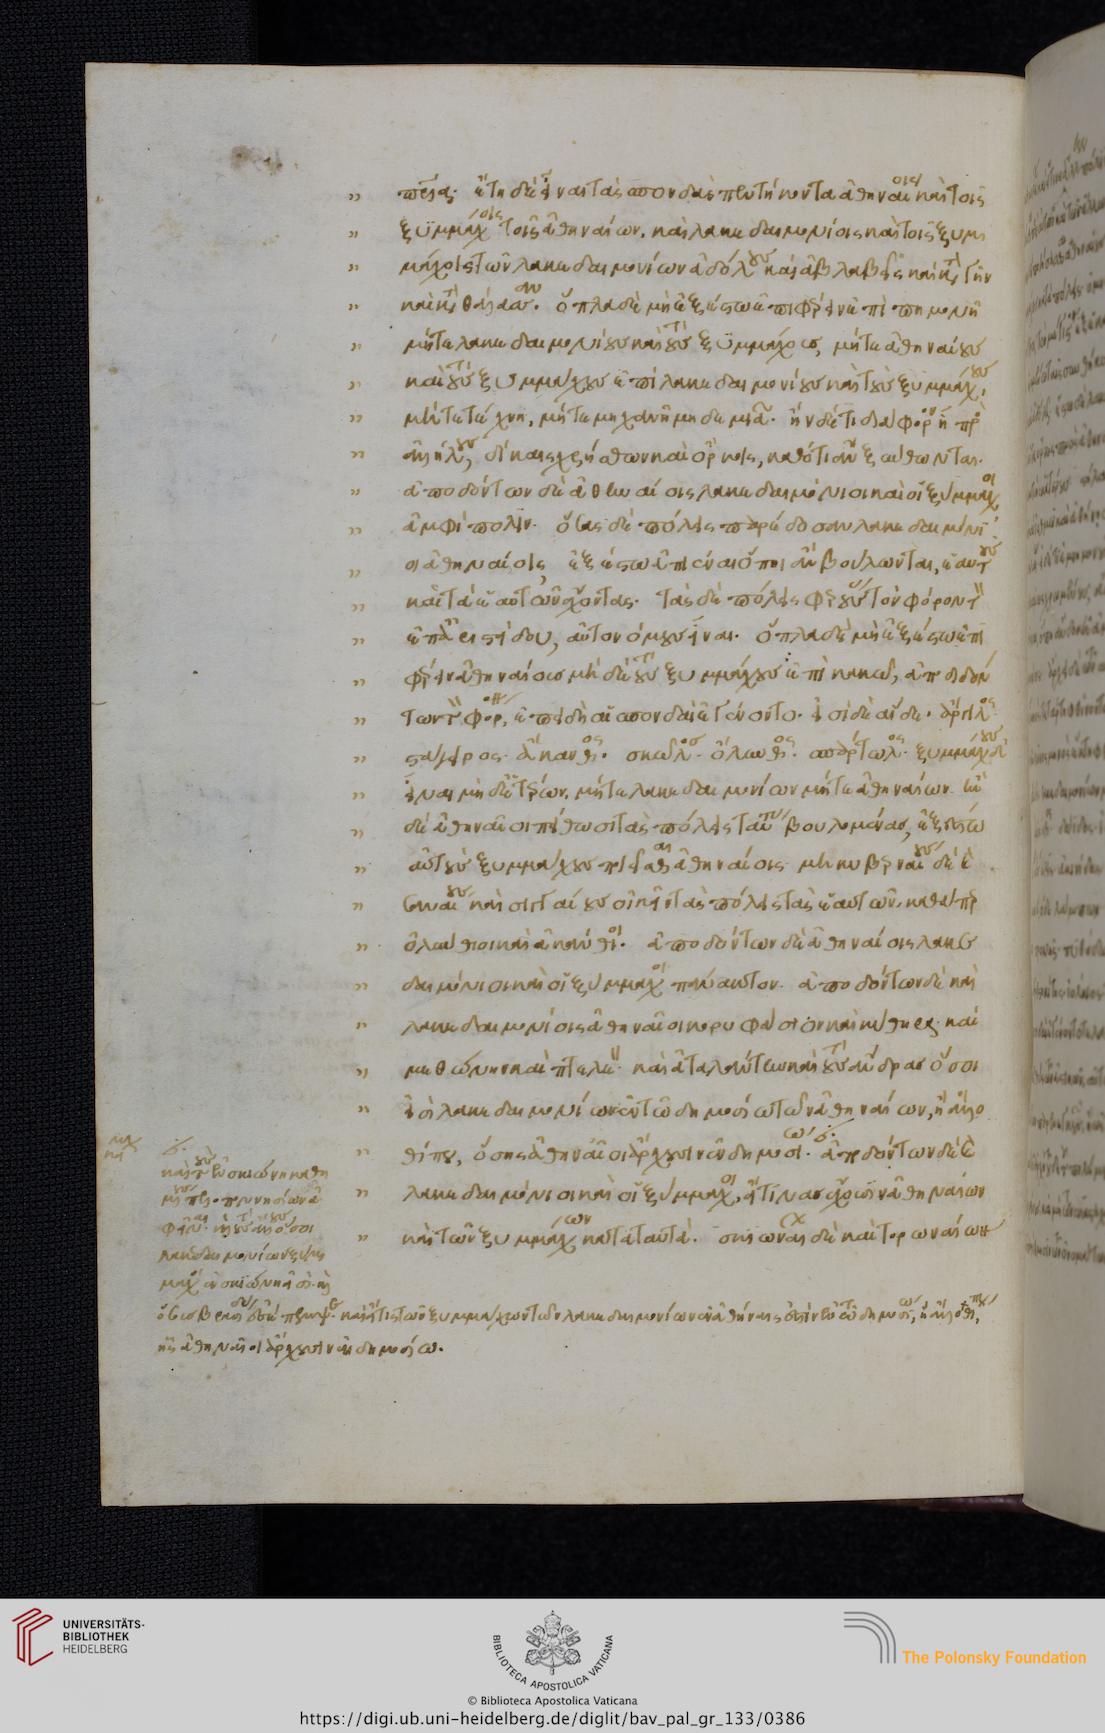 πάτρια. ἔτη δὲ εἶναι τὰς σπονδὰς πεντήκοντα ἀθηναίοις καὶ τοῖς
ξυμμάχοις τοῖς ἀθηναίων. καὶ λακεδαιμονίοις καὶ τοῖς ξυμ
μάχοις τῶν λακεδαιμονίων ἀδόλους καὶ ἀβλαβεῖς καὶ κατὰ γῆν
καὶ κατὰ θάλασσαν. ὅπλα δὲ μὴ ἐξέστω ἐπιφέρειν ἐπὶ πημονῇ
μήτε λακεδαιμονίους καὶ τοὺς ξυμμάχους, μήτε ἀθηναίους
καὶ τοὺς ξυμμάχους ἐπὶ λακεδαιμονίους καὶ τοὺς ξυμμάχους,
μήτε τέχνη, μήτε μηχανῆ μηδεμιᾶ. ἢν δέ τι διάφορον ἦ πρὸς
ἀλλήλους, δικαίω χρήσθων καὶ ὅρκοις, καθότι ἂν ξυνθῶνται.
ἀποδόντων δὲ ἀθηναίοις λακεδαιμόνιοι καὶ οἱ ξύμμαχοι
ἀμφίπολιν. ὅσας δὲ πόλεις παρέδοσαν λακεδαιμόνι
οι ἀθηναίοις, ἐξέστω ἀπιέναι ὅποι ἂν βούλωνται, αὐτοὺς
καὶ τὰ ἑαυτῶν ἔχοντας. τὰς δὲ πόλεις φερούσας τὸν φόρον τὸν
ἐπ᾽ ἀριστείδου, αὐτονόμους εἶναι. ὅπλα δὲ μὴ ἐξέστω ἐπι
φέρειν ἀθηναίους μηδὲ τοὺς ξυμμάχους ἐπὶ κακῶ, ἀποδιδόν
των τὸν φόρον, ἐπειδὴ αἱ σπονδαὶ ἐγένοντο. εἰσὶ δὲ αἵδε. ἄργιλος.
στάγειρος. ἄκανθος. σκῶλος. ὄλυνθος. σπάρτωλος. ξυμμάχους δὲ
εἶναι μηδετέρων, μήτε λακεδαιμονίων μήτε ἀθηναίων. ἢν
δὲ ἀθηναῖοι πείθωσι τὰς πόλεις ταύτας βουλομένας, ἐξέστω
αὐτοὺς ξυμμάχους ποιεῖσθαι ἀθηναίοις. μηκυβερναίους δὲ καὶ
σαναίους καὶ σιγγαίους οἰκεῖν τὰς πόλεις τὰς ἑαυτῶν, καθάπερ
ὀλύνθιοι καὶ ἀκάνθιοι. ἀποδόντων δὲ ἀθηναίοις λακε
δαιμόνιοι καὶ οἱ ξύμμαχοι πάνακτον. ἀποδόντων δὲ καὶ
λακεδαιμονίοις ἀθηναῖοι κορυφάσιον καὶ κύθηρα καὶ
μεθώνην καὶ πτελεὸν καὶ ἀταλάντην καὶ τοὺς ἄνδρας ὅσοι
εἰσὶ λακεδαιμονίων ἐν τῶ δημοσίω τῶν ἀθηναίων, ἢ ἄλλο
θί που, ὅσης ἀθηναῖοι ἄρχουσιν ἐν δημοσίω. ἀποδόντων δὲ καὶ
λακεδαιμόνιοι καὶ οἱ ξύμμαχοι, οὕστινας ἔχουσιν ἀθηναίων
καὶ τῶν ξυμμάχων κατὰ ταὐτά. σκιωναίων δὲ καὶ τορωναίων
καὶ τοὺς ἐν σκιώνη
πελοποννησίων
ἀφεῖναι. καὶ τοὺς ἄλλους ὅσοι
λακεδαιμονίων ξύμ
μαχοι ἐν σκιώνη εἰσὶ καὶ
ὅσους βρασίδας ἐσέπεμψε. καὶ εἴ τις τῶν ξυμμάχων τῶν λακεδαιμονίων ἐν ἀθήναις ἐστὶν ἐν τῶ δημοσίω, ἢ ἄλλοθί που,
ἧς ἀθηναῖοι ἄρχουσιν ἐν δημοσίω.
UNIVERSITÄTS-
BIBLIOTHEK
HEIDELBERG
BIBLIOTECA APOSTOLICA VATICANA
The Polonsky Foundation
© Biblioteca Apostolica Vaticana
https://digi.ub.uni-heidelberg.de/diglit/bav_pal_gr_133/0386